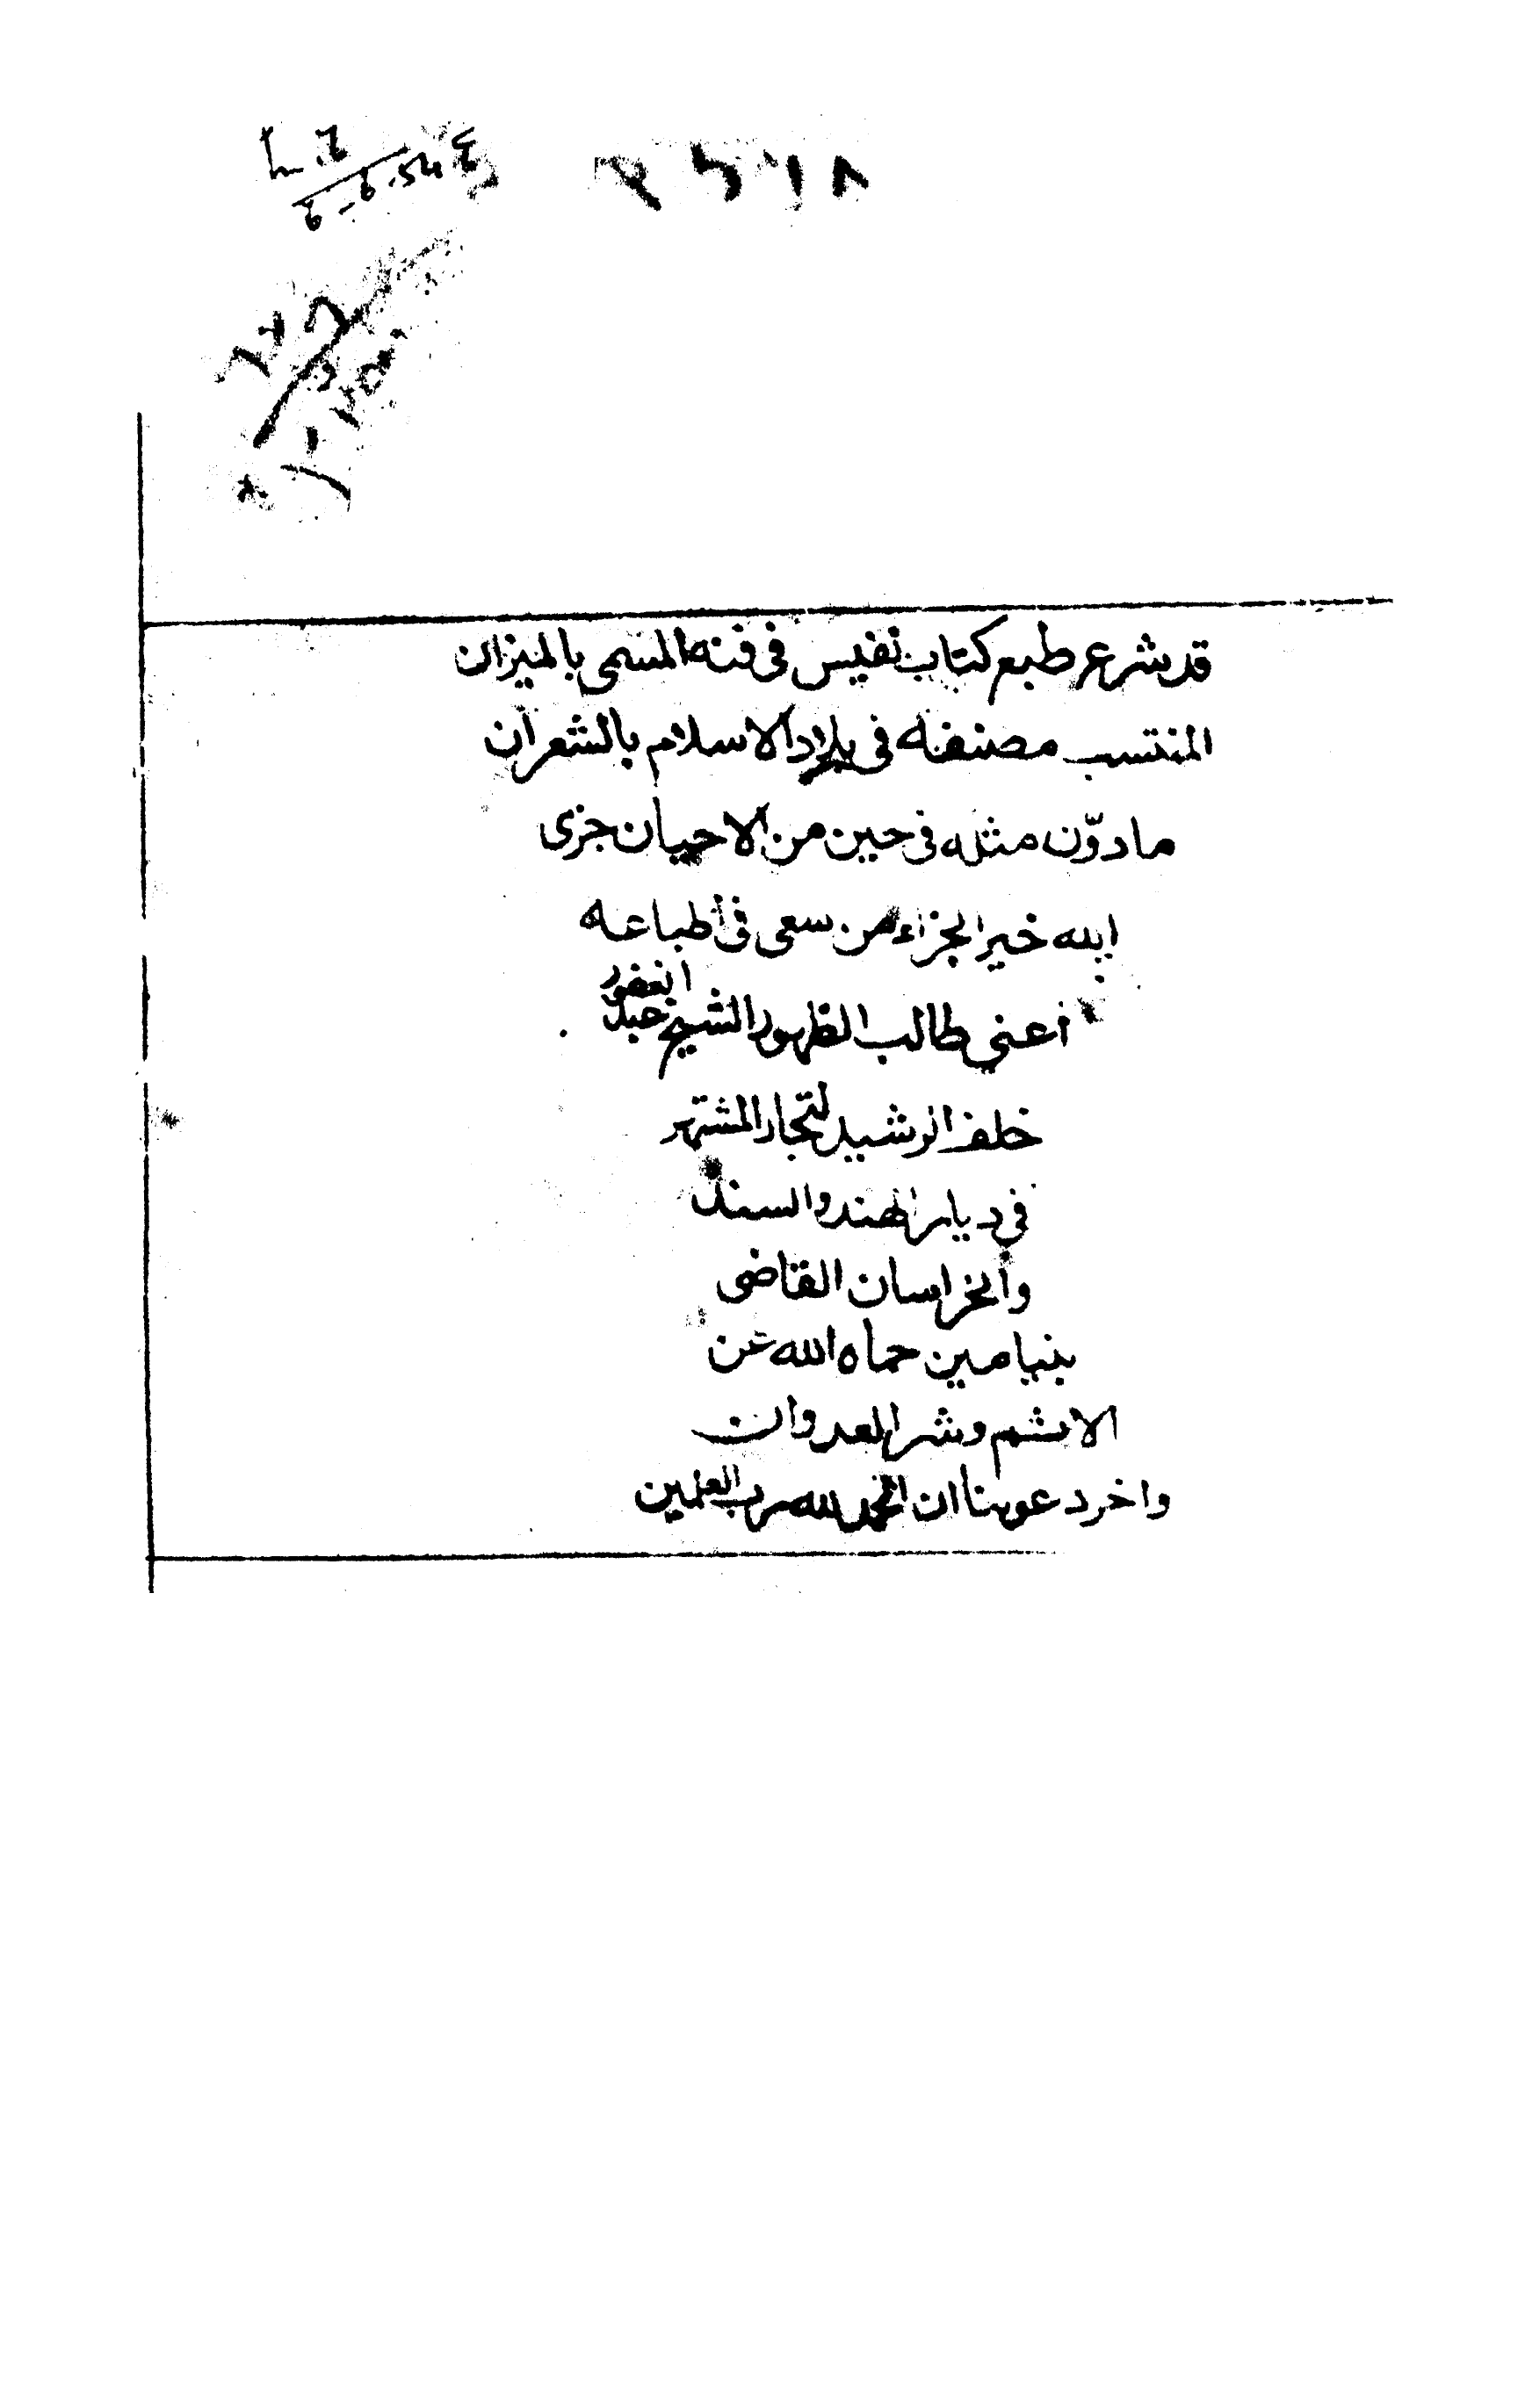 قد شرع طبع كتاب نفيس فى فنه المسمى بالميزان
المنتسب مصنفه فى بلاد الاسلام بالشعران
ما دوّن مثله فى حين من الاحيان جزى
الله خير الجزاء من سعى فى أطباعه
أعني طالب الظهور الشيخ عبد الغفور
خلف الرشيد لتجار المشتهر
فى ديار الهند والسند
والخراسان القاضى
بنيامين حماه الله عن
الاثم وشر العدوان
واخر دعوىنا ان الحمد لله رب العلمين